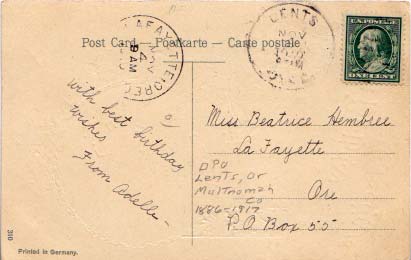 Post Card — Postkarte — Carte postale
LAFAYETTE, OREG.
NOV
4
9 AM
LENTS
NOV
OREG.
U.S. POSTAGE
ONE CENT
With best birthday
wishes
From Adelle
Miss Beatrice Hembree
La Fayette
Ore
P.O. Box 55
DPO
Lents, Or
Multnomah
Co
1886-1917
310
Printed in Germany.